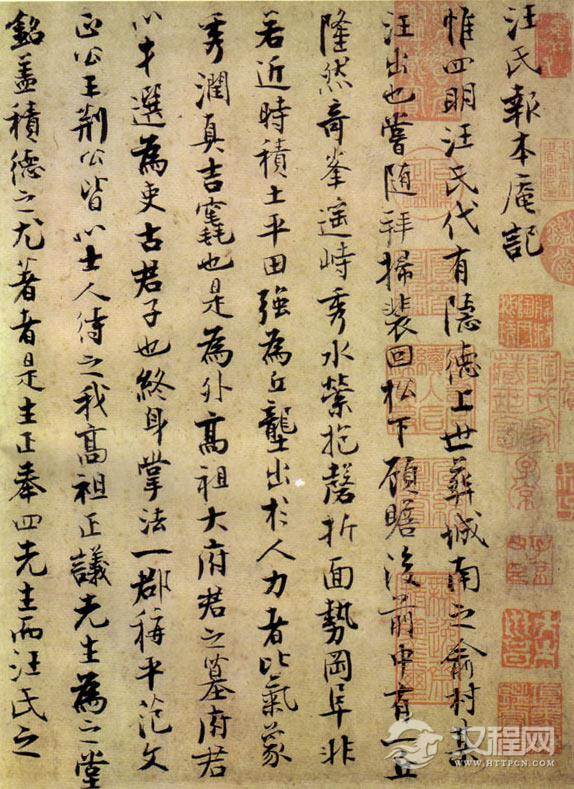 汪氏報本庵記
惟四明汪氏代有隱德上世葬城南之俞村某
汪出也嘗随拜掃裴回松下顧瞻後前中有一丘
隆然奇峯遥峙秀水縈抱磬折面勢岡阜非
若近時積土平田強為丘壟出於人力者比氣象
秀潤真吉竁也是為外高祖大府君之墓府君
以才選為吏古君子也終身掌法一郡稱平范文
正公王荆公皆以士人待之我高祖正議先生為之堂
銘盖積德之尤著者是生正奉四先生而汪氏之
汉程网
WWW.HTTPCN.COM